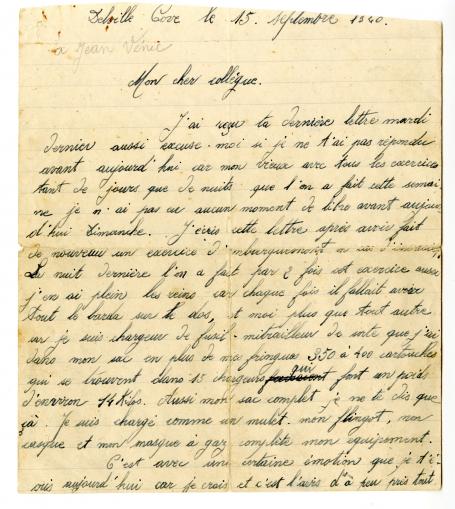 Delville Cove le 15. septembre 1940.
a Jean Vénic
Mon cher collègue.
J'ai reçu ta dernière lettre mardi
dernier aussi excuse-moi si je ne t'ai pas répondu
avant aujourd'hui car mon vieux avec tous les exercices
tant de jours que de nuits que l'on a fait cette semai-
ne je n'ai pas eu aucun moment de libre avant aujour-
d'hui Dimanche. J'écris cette lettre après avoir fait
de nouveau un exercice d'embarquement
La nuit dernière l'on a fait par 2 fois cet exercice aussi
j'en ai plein les reins car chaque fois il fallait avoir
tout le barda sur le dos, et moi plus que tout autre
car je suis chargeur de fusil-mitrailleur de sorte que j'ai
dans mon sac en plus de mes fringues 350 à 400 cartouches
qui se trouvent dans 15 chargeurs qui font un poids
d'environ 14 Kilos. Aussi mon sac complet je ne te dis que
çà. Je suis chargé comme un mulet. mon flingot, mon
casque et mon masque à gaz complète mon équipement.
C'est avec une certaine émotion que je t'é-
cris aujourd'hui car je crois et c'est l'avis d'à peu près tout